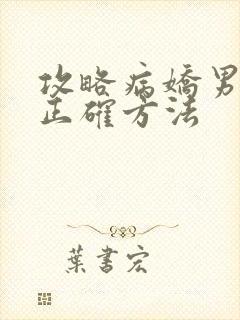 攻略病嬌男
正確方法
葉書宏